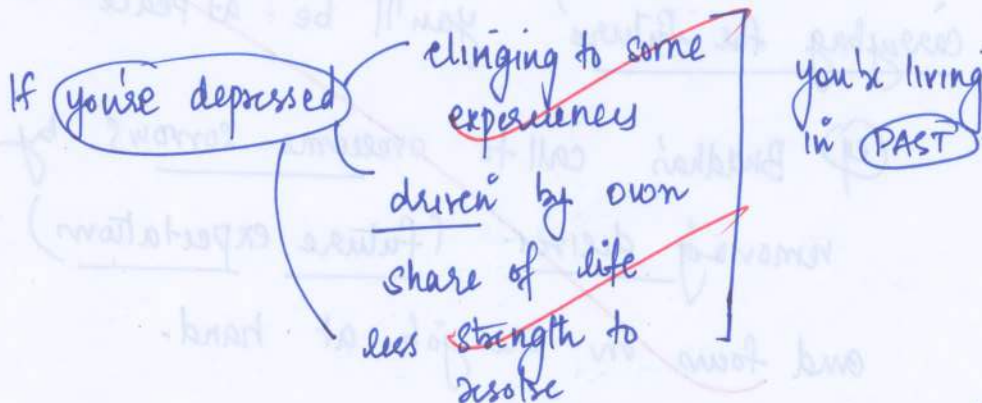 If you're depressed
clinging to some
experiences
driven by own
share of life
less strength to
resolve
you're living
in PAST